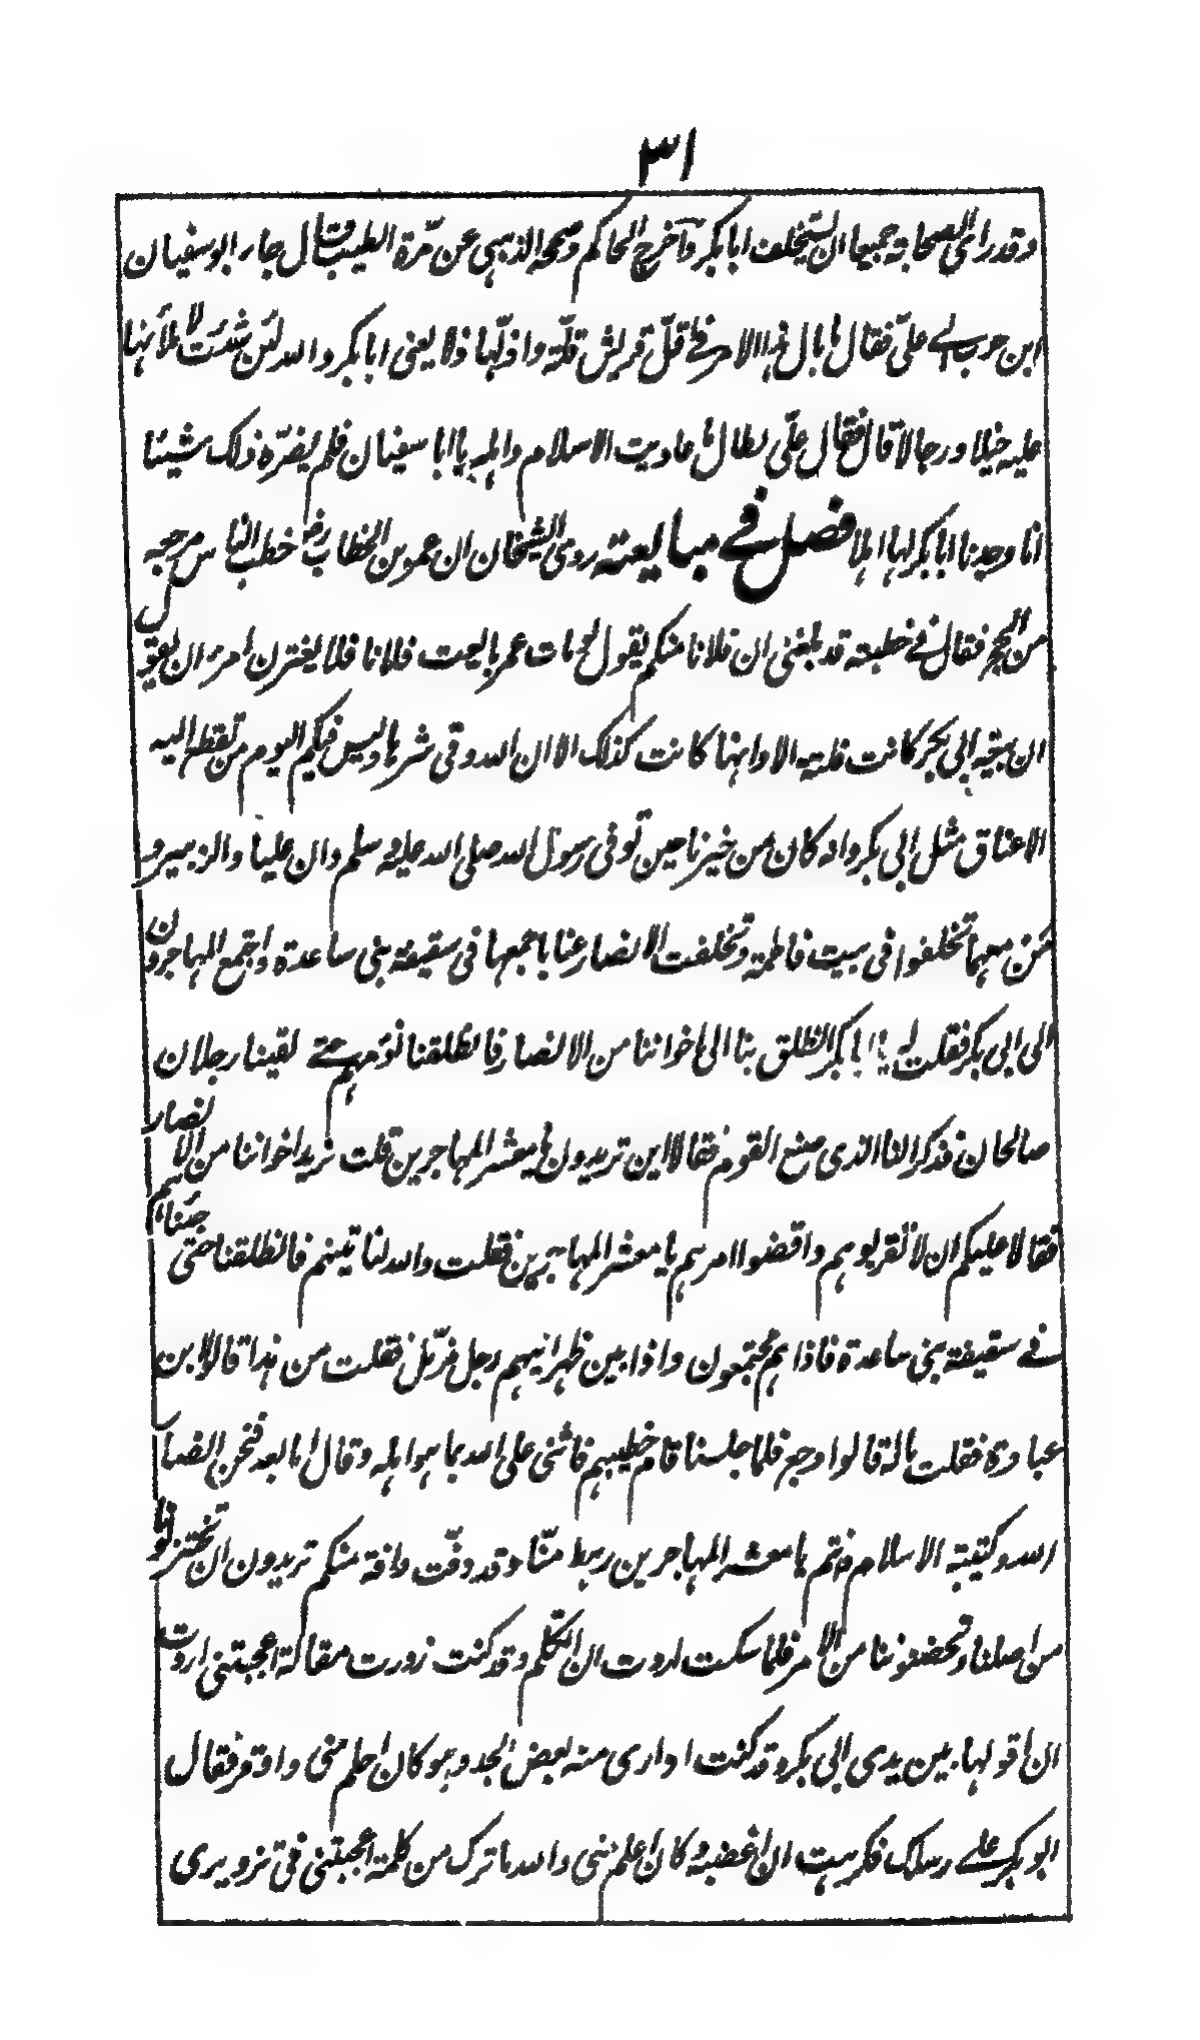 ٣١
وقد رأى الصحابة جميعا ان يستخلف ابا بكر وأخرج الحاكم وصححه الذهبي عن مرّة الطيب قال جاء ابو سفيان
ابن حرب الى علىّ فقال ما بال هذا الامر فى قلّ قريش قلّة واذلّها ذلا يعنى ابا بكر والله لئن شئت لاملأنها
عليه خيلا ورجالا قال فقال علىّ لطال ما عاديت الاسلام واهله يا ابا سفيان فلم يضرّه ذلك شيئا
انا وجدنا ابا بكر لها اهلا فصل في مبايعته روى الشيخان ان عمر بن الخطاب رض خطب الناس مرجعه
من الحج فقال فى خطبته قد بلغنى ان فلانا منكم يقول لو مات عمر بايعت فلانا فلا يغترن امرء ان يقول
ان بيعة ابى بكر كانت فلتة الا وانها كانت كذلك الا ان الله وقى شرها وليس فيكم اليوم من تقطع اليه
الاعناق مثل ابى بكر وانه كان من خيرنا حين توفى رسول الله صلى الله عليه وسلم وان عليا والزبير و
من معهما تخلفوا فى بيت فاطمة وتخلفت الانصار عنا باجمعها فى سقيفة بنى ساعدة واجتمع المهاجرون
الى ابى بكر فقلت له يا ابا بكر انطلق بنا الى اخواننا من الانصار فانطلقنا نؤمهم حتى لقينا رجلان
صالحان فذكرا لنا الذى صنع القوم فقالا اين تريدون يا معشر المهاجرين قلت نريد اخواننا من الانصار
فقالا عليكم ان لا تقربوهم واقضوا امرهم يا معشر المهاجرين فقلت والله لناتينهم فانطلقنا حتى جئناهم
فى سقيفة بنى ساعدة فاذا هم مجتمعون واذا بين ظهرانيهم رجل مزمّل فقلت من هذا قالوا ابن
عبادة فقلت ما له قالوا وجع فلما جلسنا قام خطيبهم فاثنى على الله بما هو اهله وقال اما بعد فنحن انصار
الله وكتيبة الاسلام وانتم يا معشر المهاجرين رهط منّا وقد دفّت دافة منكم تريدون ان تختزلونا
من اصلنا وتحضنوننا من الامر فلما سكت اردت ان اتكلم وقد كنت زورت مقالة اعجبتنى اردت
ان اقولها بين يدى ابى بكر وقد كنت ادارى منه بعض الحد وهو كان احلم منى واوقر فقال
ابو بكر على رسلك فكرهت ان اغضبه وكان اعلم منى والله ما ترك من كلمة اعجبتنى فى تزويرى